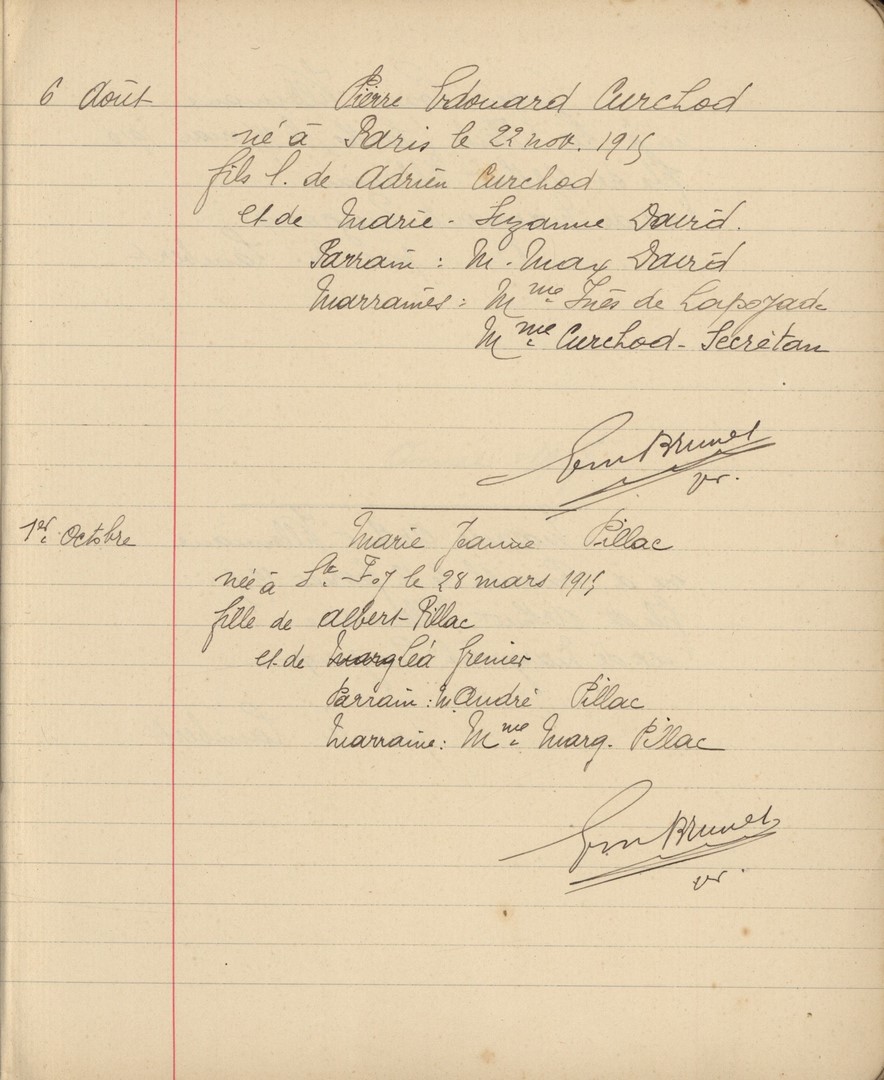 6 Août
Pierre Edouard Curchod
né à Paris le 22 nov. 1915
fils l. de Adrien Curchod
et de Marie - Suzanne David.
Parrain : M. Max David
Marraines : Mme Inès de Lapoyade
Mme Curchod - Secrétan
Brunet
pr.
1er Octobre
Marie Jeanne Pillac
née à Ste-Foy le 28 mars 1915
fille de Albert Pillac
et de Marg Léa Grenier
Parrain : M. André Pillac
Marraine : Mme Marg. Pillac
Brunet
pr.